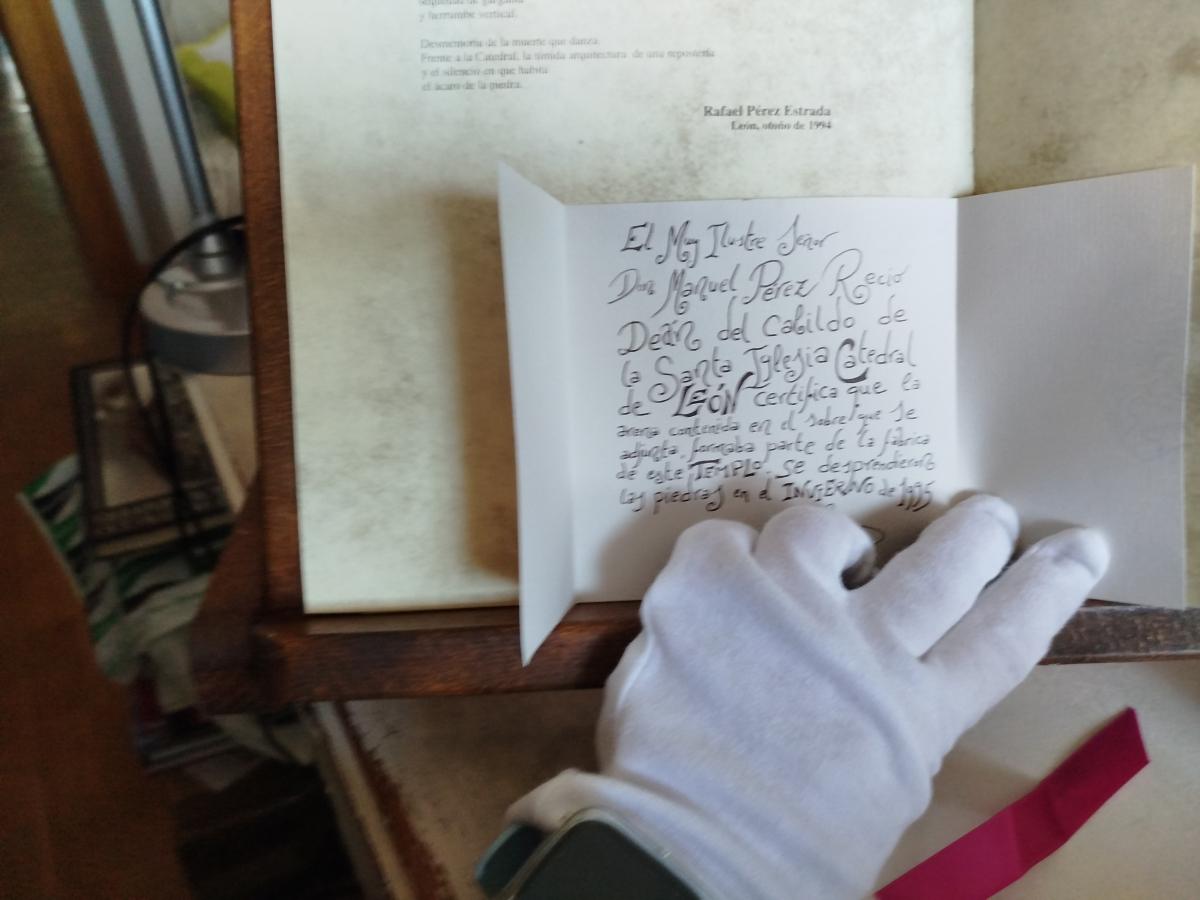 y herrumbe vertical.
Desmemoria de la muerte que danza.
Frente a la Catedral, la tímida arquitectura de una repostería
y el silencio en que habita
el ácaro de la piedra.
Rafael Pérez Estrada
León, otoño de 1994
El Muy Ilustre Señor
Don Manuel Pérez Recio
Deán del Cabildo de
la Santa Iglesia Catedral
de LEÓN certifica que la
arena contenida en el sobre que se
adjunta, formaba parte de la fábrica
de este TEMPLO. Se desprendieron
las piedras en el INVIERNO de 1995